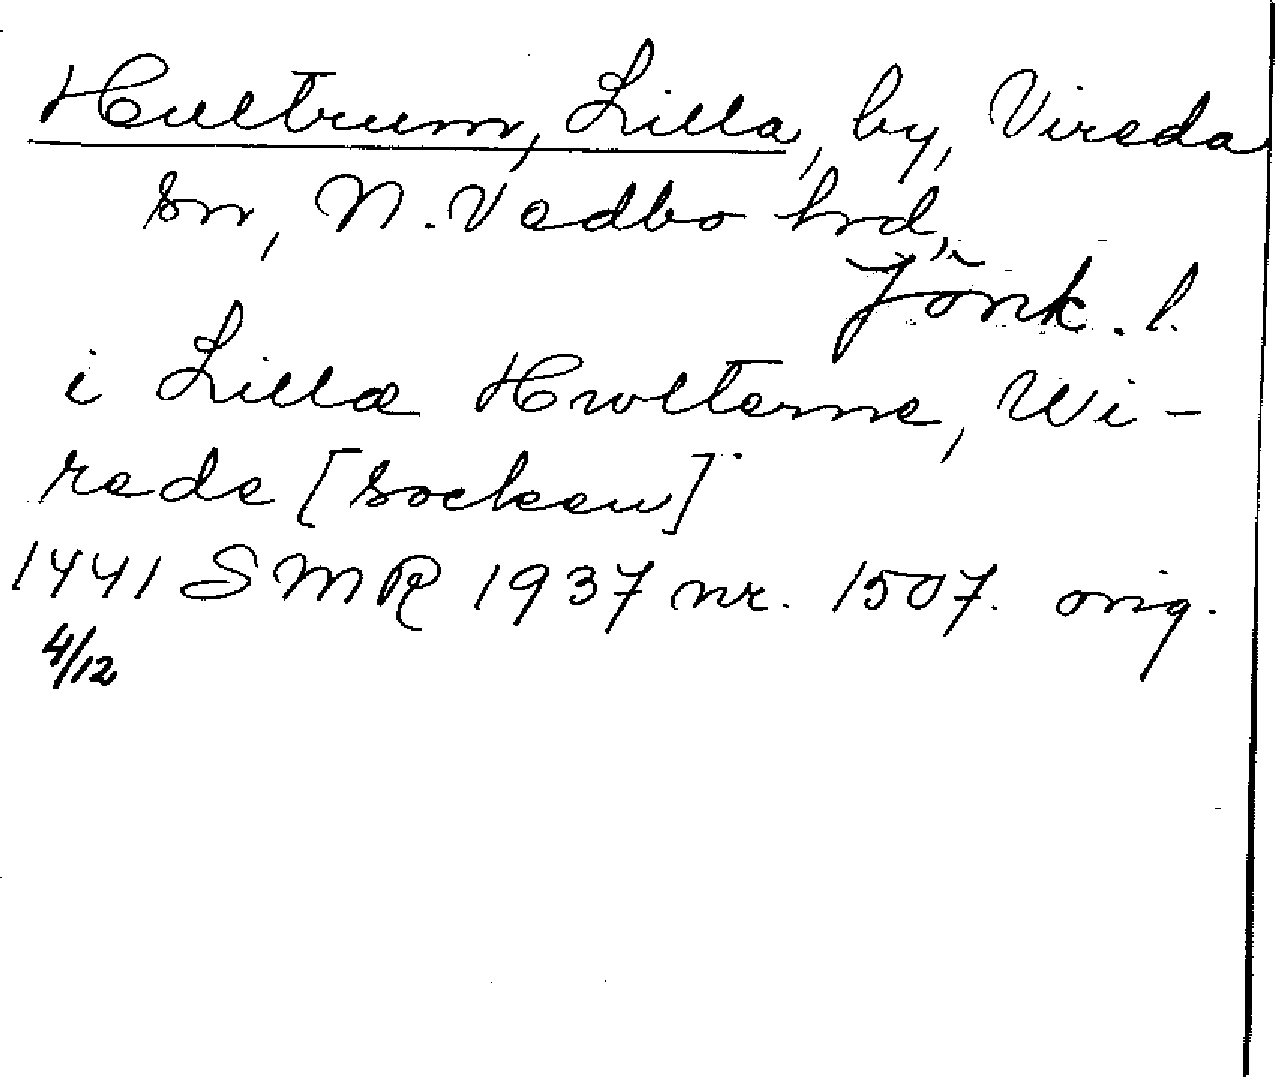 Hultrum, Lilla, by, Vireda
sn, N. Vedbo hrd,
Jönk. l.
i Lillæ Hwlterme, Wi-
rede [socken]
1441 SMR 1937 nr. 1507. orig.
4/12